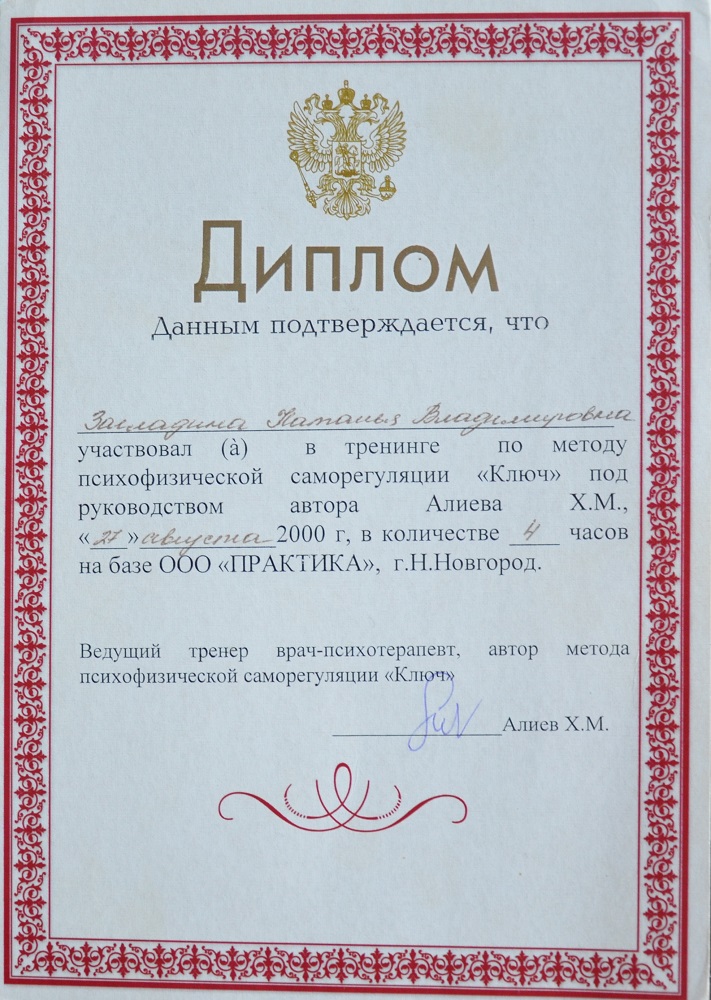 Диплом
Данным подтверждается, что
Загладина Наталья Владимировна
участвовал (а̀) в тренинге по методу
психофизической саморегуляции «Ключ» под
руководством автора Алиева Х.М.,
«27» августа 2000 г, в количестве 4 часов
на базе ООО «ПРАКТИКА», г.Н.Новгород.
Ведущий тренер врач-психотерапевт, автор метода
психофизической саморегуляции «Ключ»
Алиев Х.М.